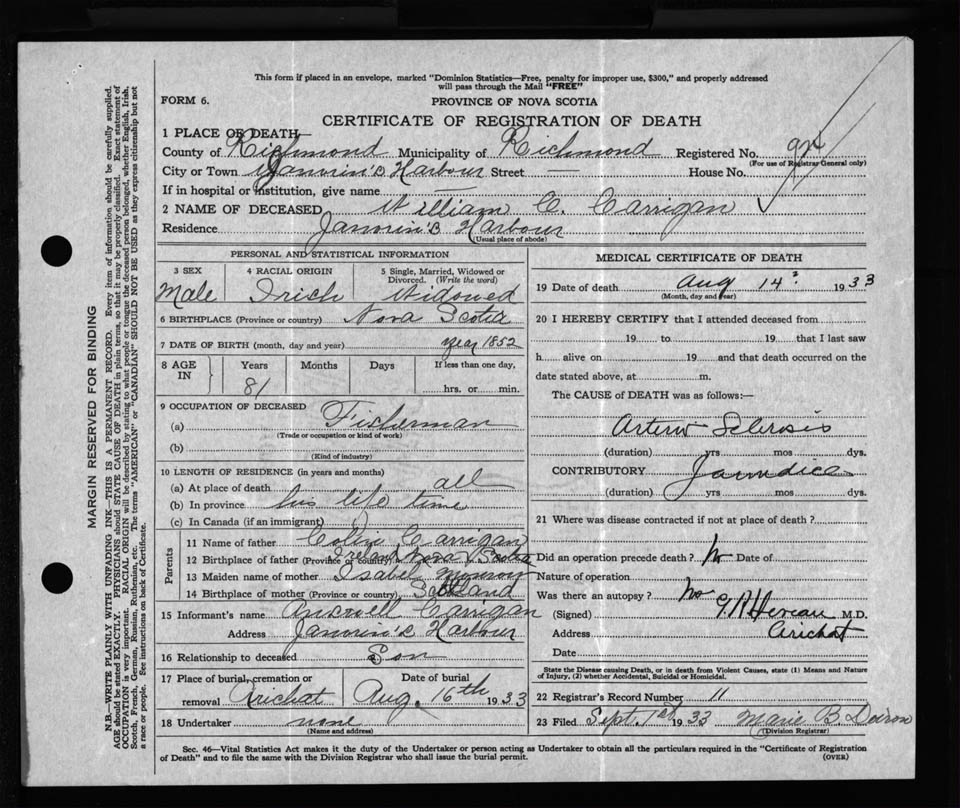 This form if placed in an envelope, marked "Dominion Statistics—Free, penalty for improper use, $300," and properly addressed
will pass through the Mail "FREE"
FORM 6.
PROVINCE OF NOVA SCOTIA
CERTIFICATE OF REGISTRATION OF DEATH
1 PLACE OF DEATH—
County of Richmond Municipality of Richmond Registered No. 
(For use of Registrar General only)
City or Town Janvrin's Harbour Street — House No.
If in hospital or institution, give name —
2 NAME OF DECEASED William C. Carrigan
Residence Janvrin's Harbour
(Usual place of abode)
PERSONAL AND STATISTICAL INFORMATION
3 SEX 4 RACIAL ORIGIN 5 Single, Married, Widowed or
Divorced. (Write the word)
Male Irish Widowed
6 BIRTHPLACE (Province or country) Nova Scotia
7 DATE OF BIRTH (month, day and year) year 1852
8 AGE IN Years Months Days If less than one day,
81 hrs. or min.
9 OCCUPATION OF DECEASED
(a) Fisherman
(Trade or occupation or kind of work)
(b)
(Kind of industry)
10 LENGTH OF RESIDENCE (in years and months)
(a) At place of death all
(b) In province his life time
(c) In Canada (if an immigrant)
Parents
11 Name of father Colin Carrigan
12 Birthplace of father (Province or country) Ireland Nova Scotia
13 Maiden name of mother Isabel
14 Birthplace of mother (Province or country) Scotland
15 Informant's name Carrigan
Address Janvrin's Harbour
16 Relationship to deceased Son
17 Place of burial, cremation or removal Arichat
Date of burial
Aug. 16th 1933
18 Undertaker none
(Name and address)
MEDICAL CERTIFICATE OF DEATH
19 Date of death Aug 14 1933
(Month, day and year)
20 I HEREBY CERTIFY that I attended deceased from
19 to 19 that I last saw
h alive on 19 and that death occurred on the
date stated above, at m.
The CAUSE of DEATH was as follows:—
Arterio Sclerosis
(duration) yrs mos. dys.
CONTRIBUTORY Jaundice
(duration) yrs mos dys.
21 Where was disease contracted if not at place of death?
Did an operation precede death? No Date of
Nature of operation
Was there an autopsy? No
(Signed) M.D.
Address Arichat
Date
State the Disease causing Death, or in death from Violent Causes, state (1) Means and Nature
of Injury, (2) whether Accidental, Suicidal or Homicidal.
22 Registrar's Record Number 11
23 Filed Sept. 1st 1933 Marie B. Doiron
(Division Registrar)
Sec. 46—Vital Statistics Act makes it the duty of the Undertaker or person acting as Undertaker to obtain all the particulars required in the "Certificate of Registration
of Death" and to file the same with the Division Registrar who shall issue the burial permit. (OVER)
MARGIN RESERVED FOR BINDING
N.B.—WRITE PLAINLY WITH UNFADING INK—THIS IS A PERMANENT RECORD. Every item of information should be carefully supplied.
AGE should be stated EXACTLY. PHYSICIANS should STATE CAUSE OF DEATH in plain terms, so that it may be properly classified. Exact statement of
OCCUPATION is very important. RACIAL ORIGIN will be described by stating to what people or tongue the deceased person belonged, whether English, Irish,
Scotch, French, German, Russian, Ruthenian, etc. The terms "AMERICAN" or "CANADIAN" SHOULD NOT BE USED as they express citizenship but not
a race or people. See instructions on back of Certificate.